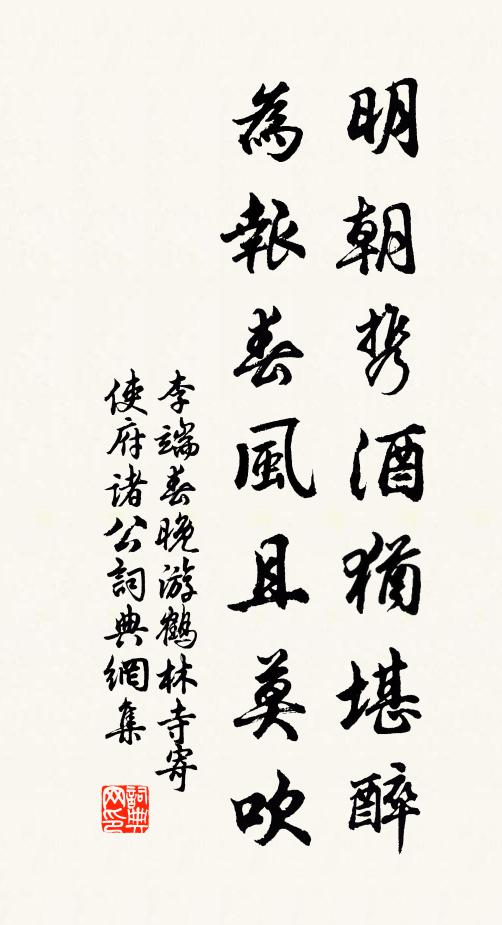 明朝携酒猶堪醉
為報春風且莫吹
李端春晚游鶴林寺寄
使府诸公詞典網集
詞典网印